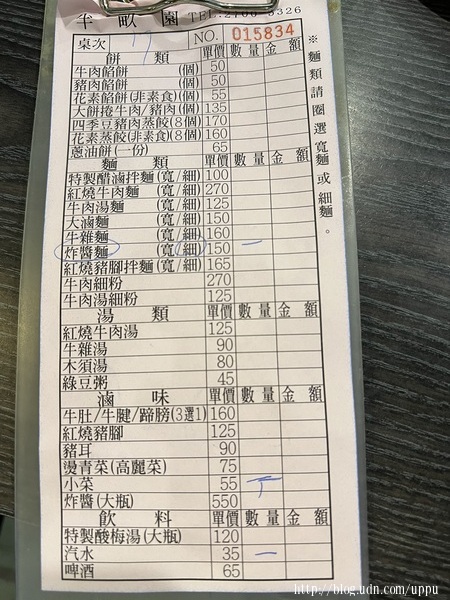 半畝園 TEL:2700-5326
桌次 17 NO. 015834
餅類 單價 數量 金額
牛肉餡餅 (個) 50
豬肉餡餅 (個) 50
花素餡餅(非素食)(個) 55
大餅捲牛肉/豬肉(個) 135
四季豆豬肉蒸餃(8個) 170
花素蒸餃(非素食)(8個) 160
蔥油餅(一份) 65
麵類 單價 數量 金額
特製醋滷拌麵(寬/細) 100
紅燒牛肉麵 (寬/細) 270
牛肉湯麵 (寬/細) 125
大滷麵 (寬/細) 150
牛雜麵 (寬/細) 160
炸醬麵 (寬/細) 150 一
紅燒豬腳拌麵(寬/細) 165
牛肉細粉 270
牛肉湯細粉 125
湯類 單價 數量 金額
紅燒牛肉湯 125
牛雜湯 90
木須湯 80
綠豆粥 45
滷味 單價 數量 金額
牛肚/牛腱/蹄膀(3選1) 160
紅燒豬腳 125
豬耳 90
燙青菜(高麗菜) 75
小菜 55 丅
炸醬(大瓶) 550
飲料 單價 數量 金額
特製酸梅湯(大瓶) 120
汽水 35 一
啤酒 65
※麵類請圈選寬麵或細麵。
http://blog.udn.com/uppu